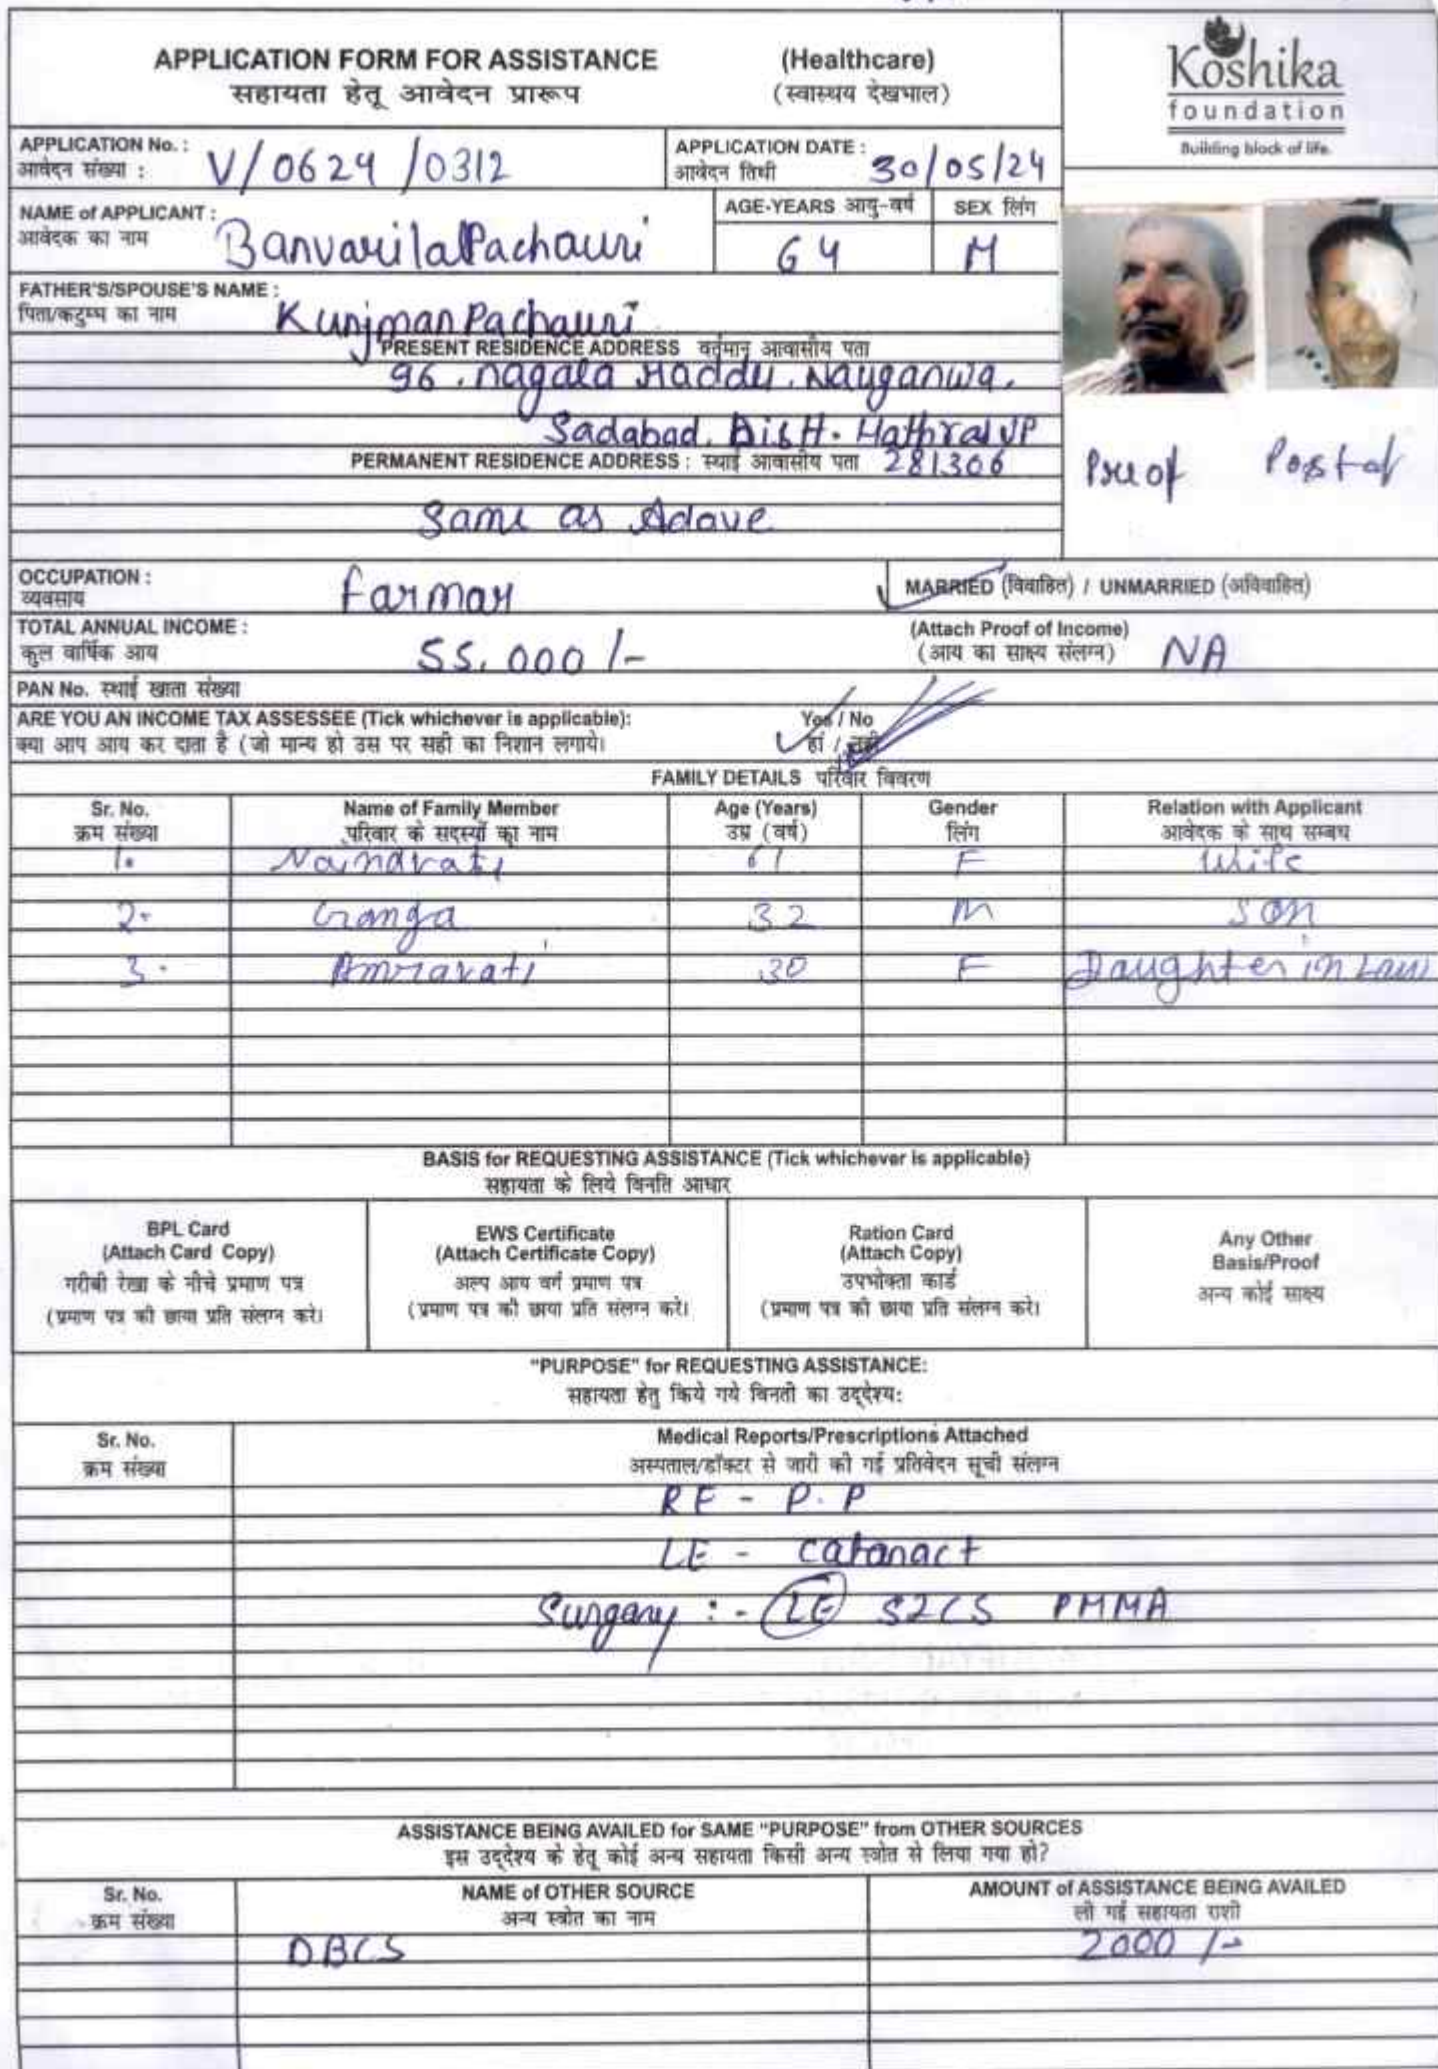 APPLICATION FORM FOR ASSISTANCE (Healthcare)
सहायता हेतू आवेदन प्रारूप (स्वास्थय देखभाल)
Koshika
foundation
Building block of life.
APPLICATION No. : V/0624/0312
आवेदन संख्या :
APPLICATION DATE : 30/05/24
आवेदन तिथी
NAME of APPLICANT : Banvarilal Pachauri
आवेदक का नाम
AGE-YEARS आयु-वर्ष 64
SEX लिंग M
FATHER'S/SPOUSE'S NAME : Kunjman Pachauri
पिता/कटुम्ब का नाम
PRESENT RESIDENCE ADDRESS वर्तमान आवासीय पता
96, nagala Haddu, Nauganwa,
Sadabad, Distt. Hathras UP
281306
PERMANENT RESIDENCE ADDRESS : स्थाई आवासीय पता
Same as Adave
Preof Postof
OCCUPATION : Farmar
व्यवसाय
MARRIED (विवाहित) / UNMARRIED (अविवाहित)
TOTAL ANNUAL INCOME : 55,000/-
कुल वार्षिक आय
(Attach Proof of Income) NA
(आय का साक्ष्य संलग्न)
PAN No. स्थाई खाता संख्या
ARE YOU AN INCOME TAX ASSESSEE (Tick whichever is applicable): Yes / No
क्या आप आय कर दाता है (जो मान्य हो उस पर सही का निशान लगाये। हां / नहीं
FAMILY DETAILS परिवार विवरण
Sr. No. Name of Family Member Age (Years) Gender Relation with Applicant
क्रम संख्या परिवार के सदस्यों का नाम उम्र (वर्ष) लिंग आवेदक के साथ सम्बध
1. Naindrati 61 F Wife
2. Ganga 32 M Son
3. Amravati 30 F Daughter in Law
BASIS for REQUESTING ASSISTANCE (Tick whichever is applicable)
सहायता के लिये विनति आधार
BPL Card
(Attach Card Copy)
गरीबी रेखा के नीचे प्रमाण पत्र
(प्रमाण पत्र की छाया प्रति संलग्न करे।
EWS Certificate
(Attach Certificate Copy)
अल्प आय वर्ग प्रमाण पत्र
(प्रमाण पत्र की छाया प्रति संलग्न करे।
Ration Card
(Attach Copy)
उपभोक्ता कार्ड
(प्रमाण पत्र की छाया प्रति संलग्न करे।
Any Other
Basis/Proof
अन्य कोई साक्ष्य
"PURPOSE" for REQUESTING ASSISTANCE:
सहायता हेतु किये गये विनती का उद्देश्य:
Sr. No. Medical Reports/Prescriptions Attached
क्रम संख्या अस्पताल/डॉक्टर से जारी की गई प्रतिवेदन सूची संलग्न
RE - P.P
LE - Catanact
Surgary :- LE SICS PMMA
ASSISTANCE BEING AVAILED for SAME "PURPOSE" from OTHER SOURCES
इस उद्देश्य के हेतू कोई अन्य सहायता किसी अन्य स्त्रोत से लिया गया हो?
Sr. No. NAME of OTHER SOURCE AMOUNT of ASSISTANCE BEING AVAILED
क्रम संख्या अन्य स्त्रोत का नाम ली गई सहायता राशी
DBCS 2000/-